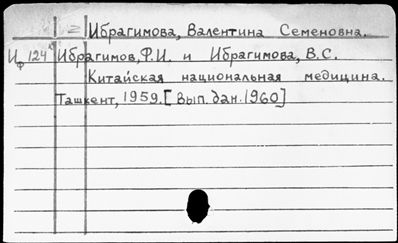 Ибрагимова, Валентина Семеновна.
Иф 124 Ибрагимов, Ф.И. и Ибрагимова, В.С.
Китайская национальная медицина.
Ташкент, 1959. [Вып. дан. 1960]